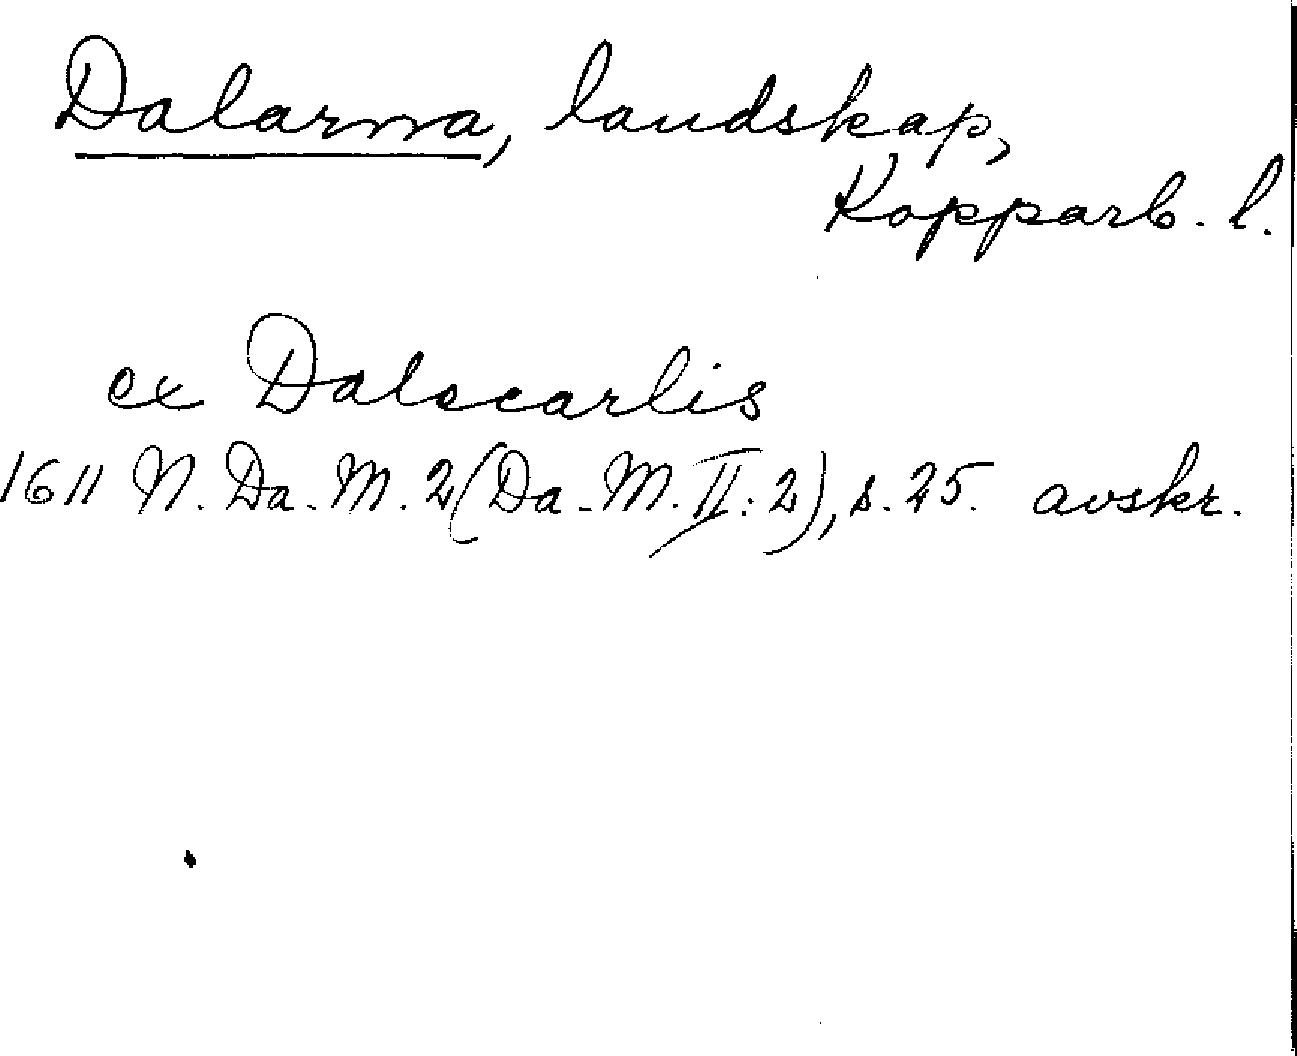 Dalarna, landskap,
Kopparb. l.
ex Dalecarlis
1611 N. Da. M. 2 (Da. M. II: 2), s. 25. avskr.